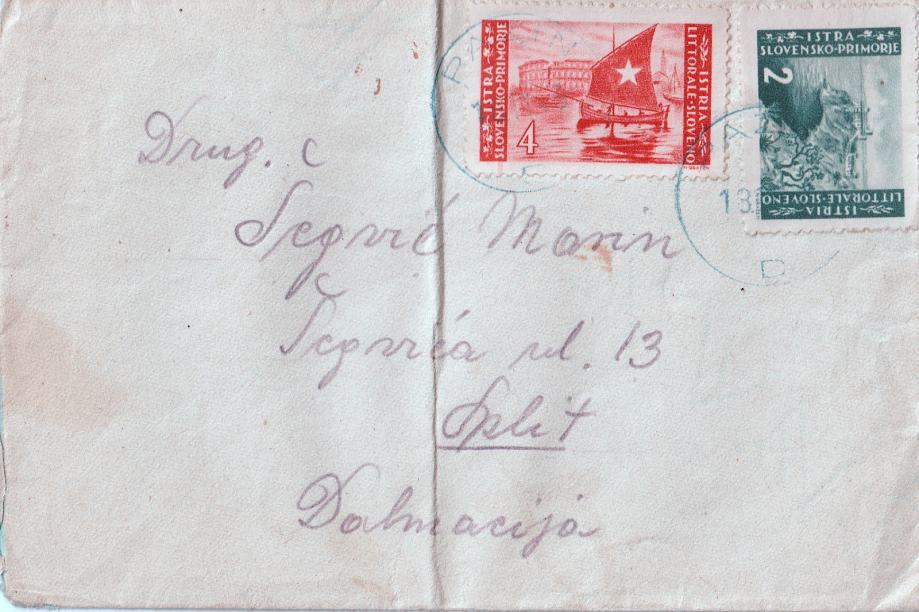 ISTRA
SLOVENSKO-PRIMORJE
4
ISTRIA
LITTORALE-SLOVENO
ISTRA
SLOVENSKO-PRIMORJE
2
ISTRIA
LITTORALE-SLOVENO
13
D
Drug. c
Šegvić Marin
Šegvića ul. 13
Split
Dalmacija